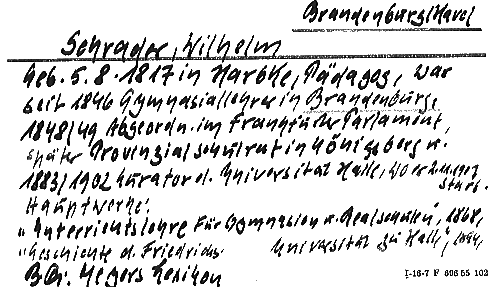 Brandenburg/Havel
Schrader, Wilhelm
Geb. 5.8.1817 in Harbke, Pädagog, war
seit 1846 Gymnasiallehrer in Brandenburg,
1848/49 Abgeordn. im Frankfurter Parlament,
später Provinzialschulrat in Königsberg u.
1883/1902 Kurator d. Universität Halle, wo er
starb.
Hauptwerke:
„Unterrichtslehre für Gymnasien u. Realschulen", 1868,
„Geschichte d. Friedrichs-Universität zu Halle", 1894,
Bd.: Meyers Lexikon
I-16-7 F 606 55 102